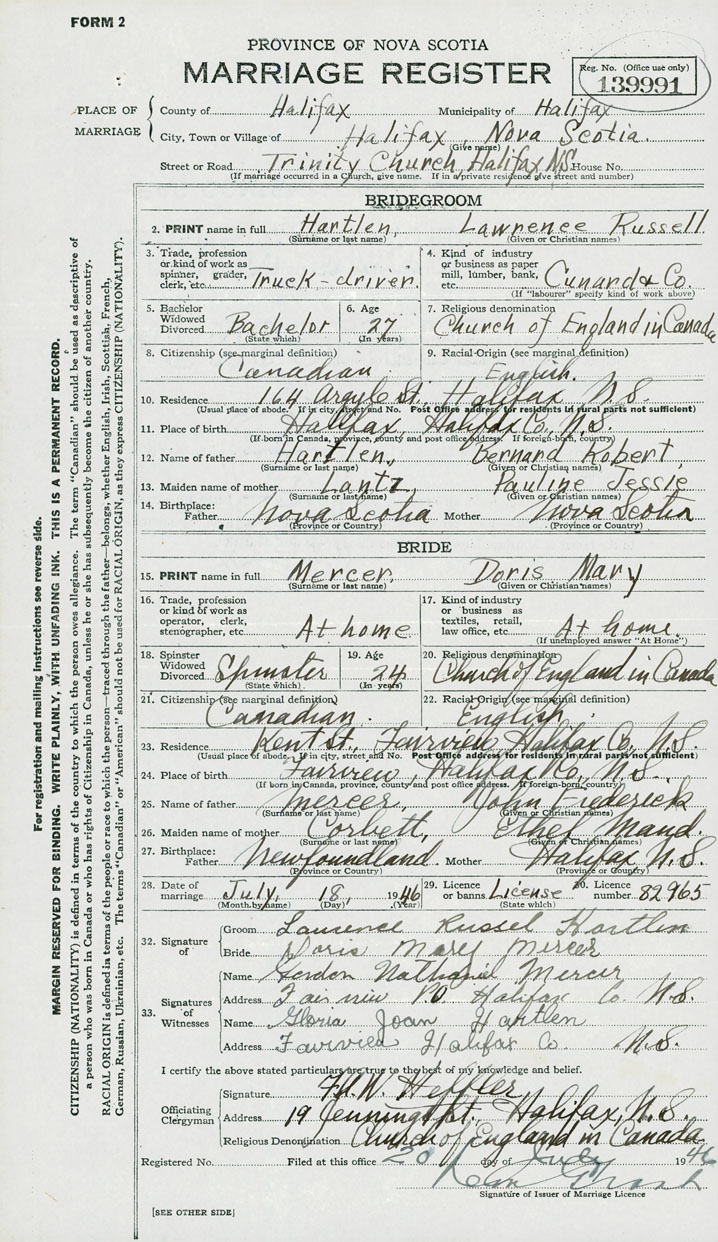 FORM 2
PROVINCE OF NOVA SCOTIA
MARRIAGE REGISTER
Reg. No. (Office use only)
139991
PLACE OF MARRIAGE
County of Halifax Municipality of Halifax
City, Town or Village of Halifax, Nova Scotia.
(Give name)
Street or Road Trinity Church, Halifax NS. House No.
(If marriage occurred in a Church, give name. If in a private residence give street and number)
BRIDEGROOM
2. PRINT name in full Hartlen, Lawrence Russell
(Surname or last name) (Given or Christian names)
3. Trade, profession or kind of work as spinner, grader, clerk, etc. Truck-driver
4. Kind of industry or business as paper mill, lumber, bank, etc. Cunard & Co.
(If "labourer" specify kind of work above)
5. Bachelor Widowed Divorced Bachelor (State which)
6. Age 27 (In years)
7. Religious denomination Church of England in Canada
8. Citizenship (see marginal definition) Canadian
9. Racial Origin (see marginal definition) English.
10. Residence 164 Argyle St., Halifax N.S.
(Usual place of abode. If in city, street and No. Post Office address for residents in rural parts not sufficient)
11. Place of birth Halifax, Halifax Co., N.S.
(If born in Canada, province, county and post office address. If foreign-born, country)
12. Name of father Hartlen, Bernard Robert
(Surname or last name) (Given or Christian names)
13. Maiden name of mother Lantz Pauline Jessie
(Surname or last name) (Given or Christian names)
14. Birthplace: Father Nova Scotia Mother Nova Scotia
(Province or Country) (Province or Country)
BRIDE
15. PRINT name in full Mercer. Doris Mary
(Surname or last name) (Given or Christian names)
16. Trade, profession or kind of work as operator, clerk, stenographer, etc. At home
17. Kind of industry or business as textiles, retail, law office, etc. At home.
(If unemployed answer "At Home")
18. Spinster Widowed Divorced Spinster (State which)
19. Age 24 (In years)
20. Religious denomination Church of England in Canada
21. Citizenship (see marginal definition) Canadian.
22. Racial Origin (see marginal definition) English.
23. Residence Kent St., Fairview Halifax Co., N.S.
(Usual place of abode. If in city, street and No. Post Office address for residents in rural parts not sufficient)
24. Place of birth Fairview, Halifax Co., N.S.
(If born in Canada, province, county and post office address. If foreign-born, country)
25. Name of father Mercer, John Frederick
(Surname or last name) (Given or Christian names)
26. Maiden name of mother Corbett, Ethel Maud.
(Surname or last name) (Given or Christian names)
27. Birthplace: Father Newfoundland. Mother Halifax N.S.
(Province or Country) (Province or Country)
28. Date of marriage July, 18, 1946
(Month by name) (Day) (Year)
29. Licence or banns License (State which)
30. Licence number 82965
32. Signature of
Groom Laurence Russel Hartlen
Bride Doris Mary Mercer
33. Signatures of Witnesses
Name Gordon Nathaniel Mercer
Address Fairview PO Halifax Co. N.S.
Name Gloria Joan Hartlen
Address Fairview Halifax Co. N.S.
I certify the above stated particulars are true to the best of my knowledge and belief.
Officiating Clergyman
Signature F.A.W. Heffler
Address 19 Jennings St., Halifax, N.S.
Religious Denomination Church of England in Canada
Registered No. Filed at this office 20 day of July 1946
Signature of Issuer of Marriage Licence
[SEE OTHER SIDE]
For registration and mailing instructions see reverse side.
MARGIN RESERVED FOR BINDING. WRITE PLAINLY, WITH UNFADING INK. THIS IS A PERMANENT RECORD.
CITIZENSHIP (NATIONALITY) is defined in terms of the country to which the person owes allegiance. The term "Canadian" should be used as descriptive of
a person who was born in Canada or who has rights of Citizenship in Canada, unless he or she has subsequently become the citizen of another country.
RACIAL ORIGIN is defined in terms of the people or race to which the person—traced through the father—belongs, whether English, Irish, Scottish, French,
German, Russian, Ukrainian, etc. The terms "Canadian" or "American" should not be used for RACIAL ORIGIN, as they express CITIZENSHIP (NATIONALITY).